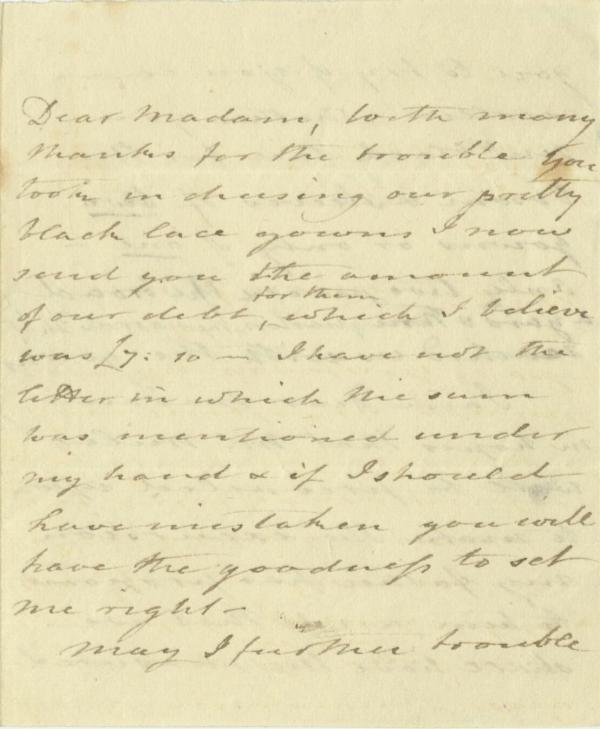 Dear Madam, with many
thanks for the trouble you
took in chusing our pretty
black lace gowns I now
send you the amount
for them
of our debt, which I believe
was £7: 10 — I have not the
letter in which the sum
was mentioned under
my hand & if I should
have mistaken you will
have the goodness to set
me right —
May I further trouble